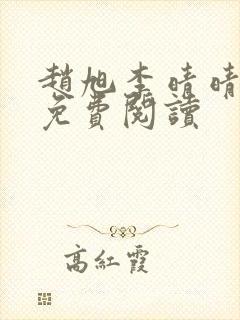 趙旭李晴晴
免費閱讀
高紅霞